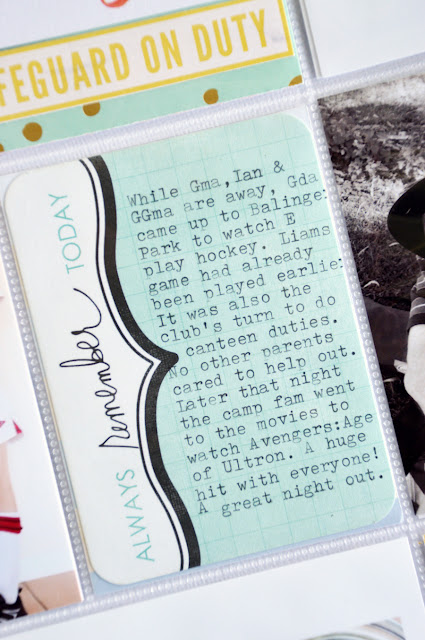 FEGUARD ON DUTY
ALWAYS remember TODAY
While Gma,Ian &
GGma are away, Gda
came up to Balinge:
Park to watch E
play hockey. Liams
game had already
been played earlie:
It was also the
club's turn to do
canteen duties.
No other parents
cared to help out.
Later that night
the camp fam went
to the movies to
watch Avengers:Age
of Ultron. A huge
hit with everyone!
A great night out.